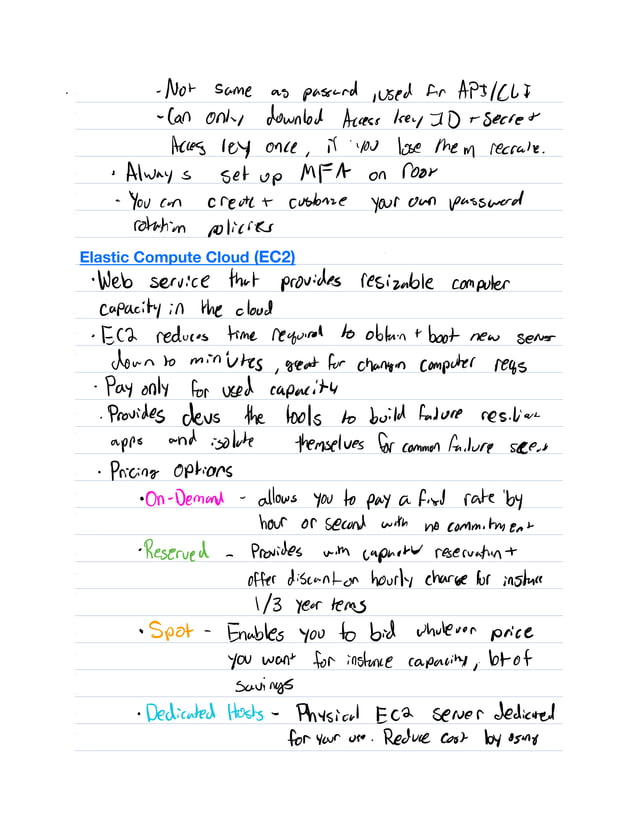 - Not same as password, used for API/CLI
- Can only download Access key ID + Secret
Access key once, if you lose them recreate.
• Always set up MFA on root
- You can create + customize your own password
rotation policies
Elastic Compute Cloud (EC2)
• Web service that provides resizable computer
capacity in the cloud
• EC2 reduces time required to obtain + boot new server
down to minutes, great for changing computer reqs
• Pay only for used capacity
• Provides devs the tools to build failure resilient
apps and isolate themselves for common failure
• Pricing Options
• On-Demand - allows you to pay a fixed rate by
hour or second with no commitment
• Reserved - Provides with capacity reservation +
offer discount on hourly charge for instance
1/3 year terms
• Spot - Enables you to bid whatever price
you want for instance capacity, lot of
savings
• Dedicated Hosts - Physical EC2 server dedicated
for your use. Reduce cost by using